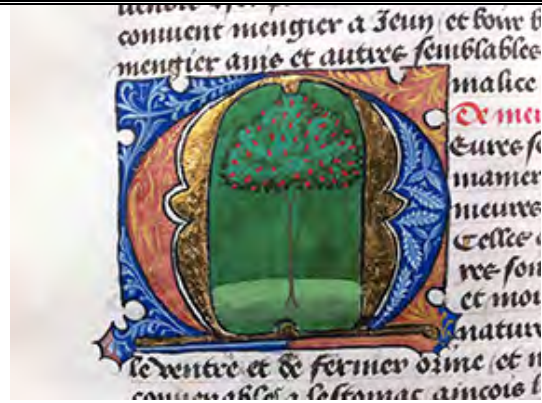 convient mengier a Jeun et boire
mengier anis et autres semblables
malice
De meu
Eures so
manier
meures
Celles
res son
et mou
nature
le ventre et de fermer orine et
convenables a lestomac aincois